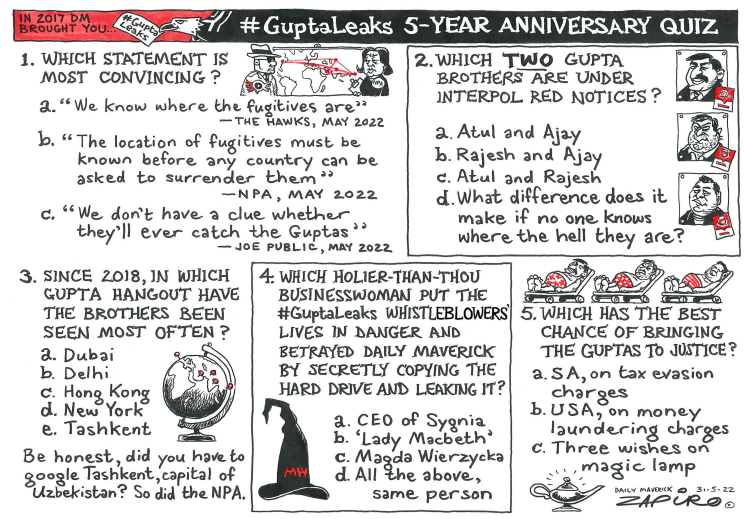 IN 2017 DM
BROUGHT YOU...
#Gupta
Leaks
#GuptaLeaks 5-YEAR ANNIVERSARY QUIZ
1. WHICH STATEMENT IS
MOST CONVINCING?
a. "We know where the fugitives are"
— THE HAWKS, MAY 2022
b. "The location of fugitives must be
known before any country can be
asked to surrender them"
— NPA, MAY 2022
c. "We don't have a clue whether
they'll ever catch the Guptas"
— JOE PUBLIC, MAY 2022
2. WHICH TWO GUPTA
BROTHERS ARE UNDER
INTERPOL RED NOTICES?
a. Atul and Ajay
b. Rajesh and Ajay
c. Atul and Rajesh
d. What difference does it
make if no one knows
where the hell they are?
3. SINCE 2018, IN WHICH
GUPTA HANGOUT HAVE
THE BROTHERS BEEN
SEEN MOST OFTEN?
a. Dubai
b. Delhi
c. Hong Kong
d. New York
e. Tashkent
Be honest, did you have to
google Tashkent, capital of
Uzbekistan? So did the NPA.
4. WHICH HOLIER-THAN-THOU
BUSINESSWOMAN PUT THE
#GuptaLeaks WHISTLEBLOWERS'
LIVES IN DANGER AND
BETRAYED DAILY MAVERICK
BY SECRETLY COPYING THE
HARD DRIVE AND LEAKING IT?
MW
a. CEO of Sygnia
b. 'Lady Macbeth'
c. Magda Wierzycka
d. All the above,
same person
5. WHICH HAS THE BEST
CHANCE OF BRINGING
THE GUPTAS TO JUSTICE?
a. SA, on tax evasion
charges
b. USA, on money
laundering charges
c. Three wishes on
magic lamp
DAILY MAVERICK 31-5-22
ZAPIRO ©